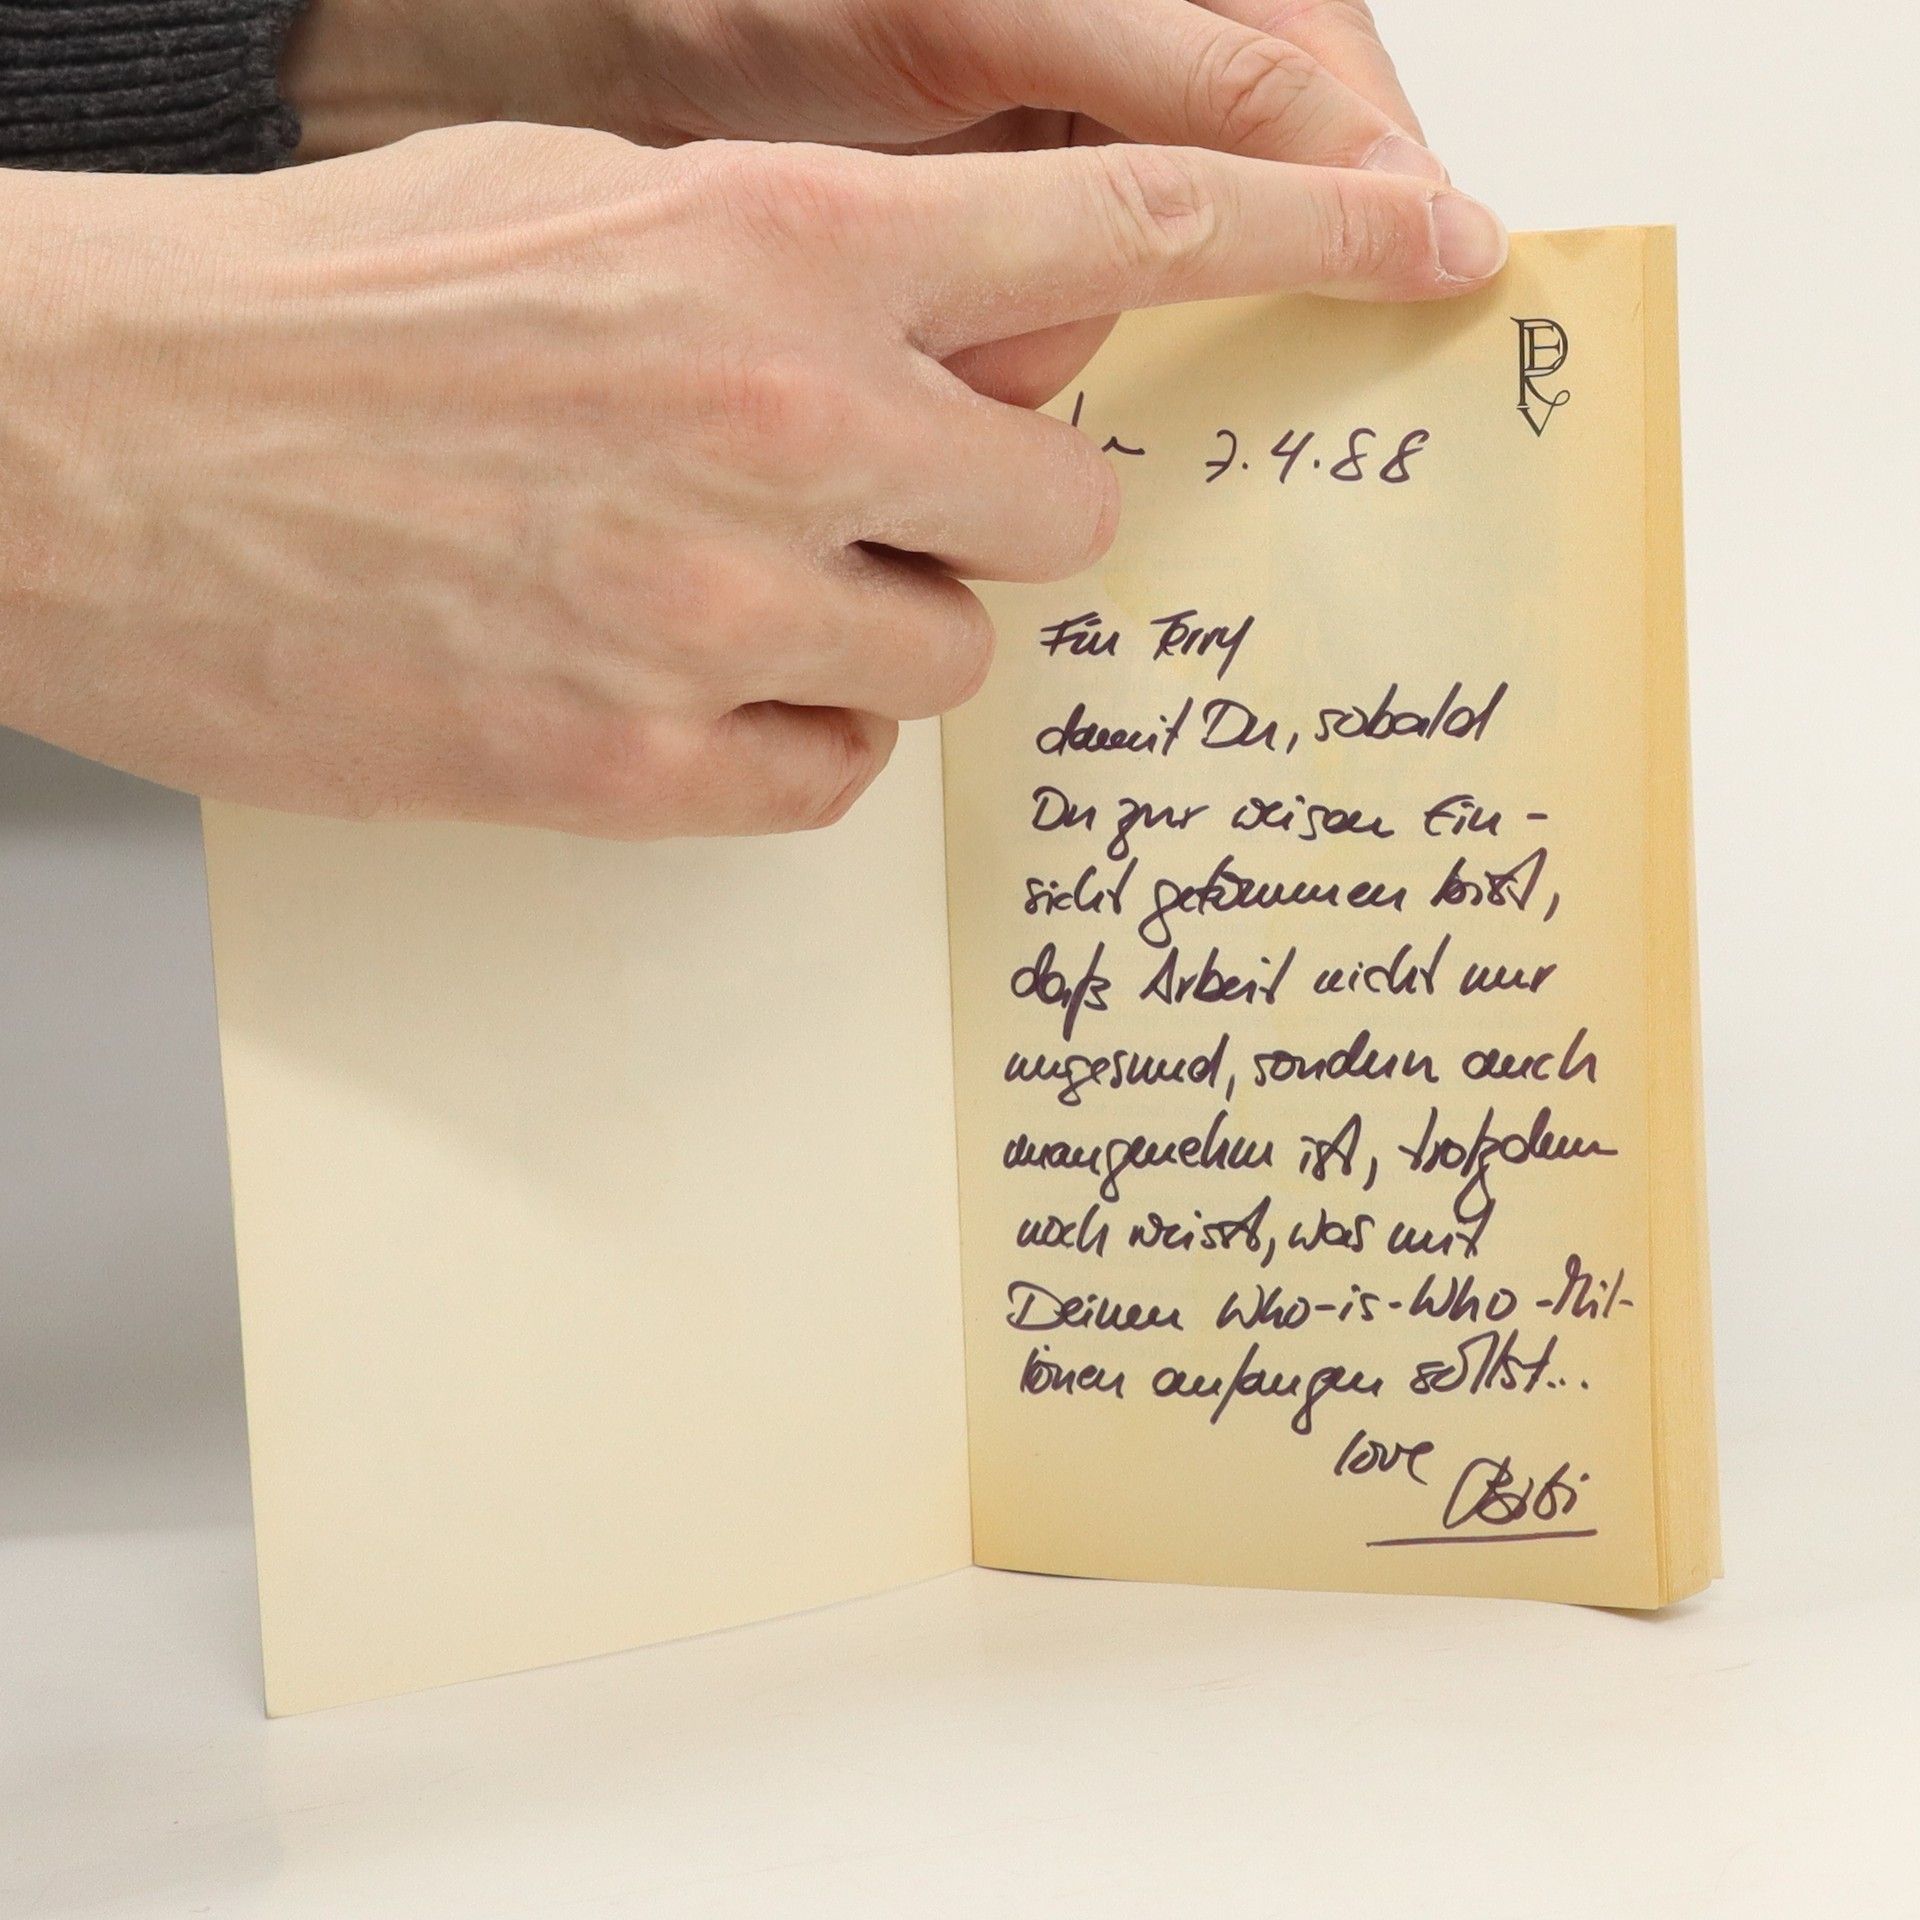 7.4.88
Für Terry
damit Du, sobald
Du zur weisen Ein-
sicht gekommen bist,
daß Arbeit nicht nur
ungesund, sondern auch
unangenehm ist, trotzdem
noch weisst, was mit
Deinen Who-is-Who-Mil-
lionen anfangen sollst...
love Bibi